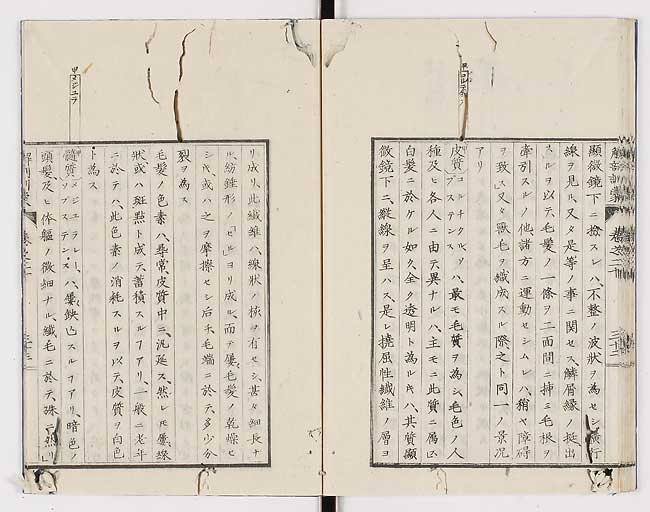 顕微鏡下ニ検スレハ、不整ノ波状ヲ為セシ横行
線ヲ見ル、又タ是等ノ事ニ関セス、鱗屑縁ノ挺出
スルヲ以テ、毛髪ノ一條ヲ二面間ニ挿ミ毛根ヲ
牽引スルノ他諸方ニ運動セシムレハ、稍ヤ障碍
ヲ致ス、又タ獣毛ヲ織成スル際之ト同一ノ景況
アリ
皮質 コルチカルソブステンス ハ、最モ毛質ヲ為シ毛色ノ人
種及ヒ各人ニ由テ異ナルハ、主モニ此質ニ属ス
白髪ニ於ケル如ク全ク透明ト為ルキハ、其質顕
微鏡下ニ縦線ヲ呈ハス、是レ撓屈性纎維ノ層ヨ
リ成ル、此纎維ハ、線状ノ核ヲ有セシ、甚タ細長ナ
ル紡錘形ノセルヨリ成ル、而テ屢毛髪ノ乾燥セ
シキ、或ハ之ヲ摩擦セシ后チ毛端ニ於テ、多少分
裂ヲ為ス
毛髪ノ色素ハ、尋常、皮質中ニ、汎延ス、然レヒ屢線
状或ハ斑點ト成テ蓄積スルヿアリ、一般ニ老年
ニ於テハ、此色素ノ消耗スルヲ以テ、皮質ヲ白色
ト為ス
髄質 メジュラレーソブステンス ハ、屢缺亡スルヿアリ、暗色ノ
頭髪及ヒ体軀ノ微細ナル纎毛ニ於テ、殊ニ然リ